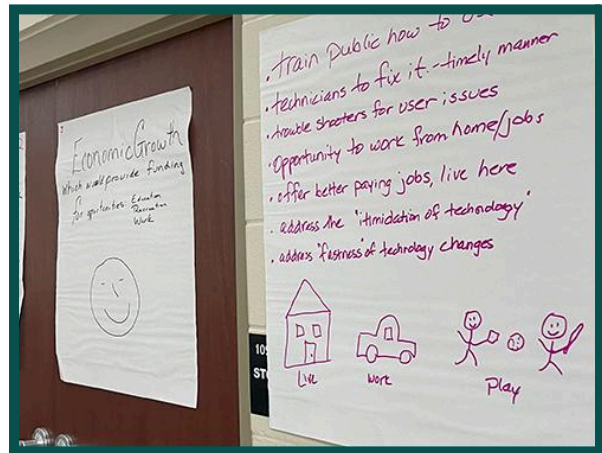 Economic Growth
Which would provide funding
for oportunities: Education
Recreation
Work
• train public how to
• technicians to fix it - timely manner
• trouble shooters for user issues
• Opportunity to work from home/jobs
• offer better paying jobs, live here
• address the "itimidation of technology"
• address "fastness" of technology changes
Live
work
Play
109
STO